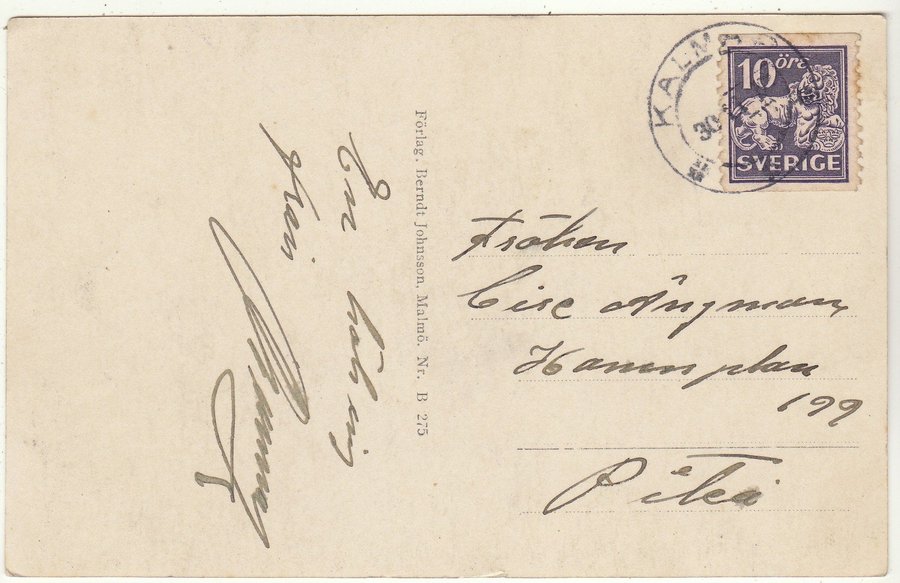 KALMAR
30
10 öre
SVERIGE
Fröken
Cise Ångman
Hamnplan
199
Piteå
Förlag. Berndt Johnsson, Malmö. Nr. B 275
En hälsning
från